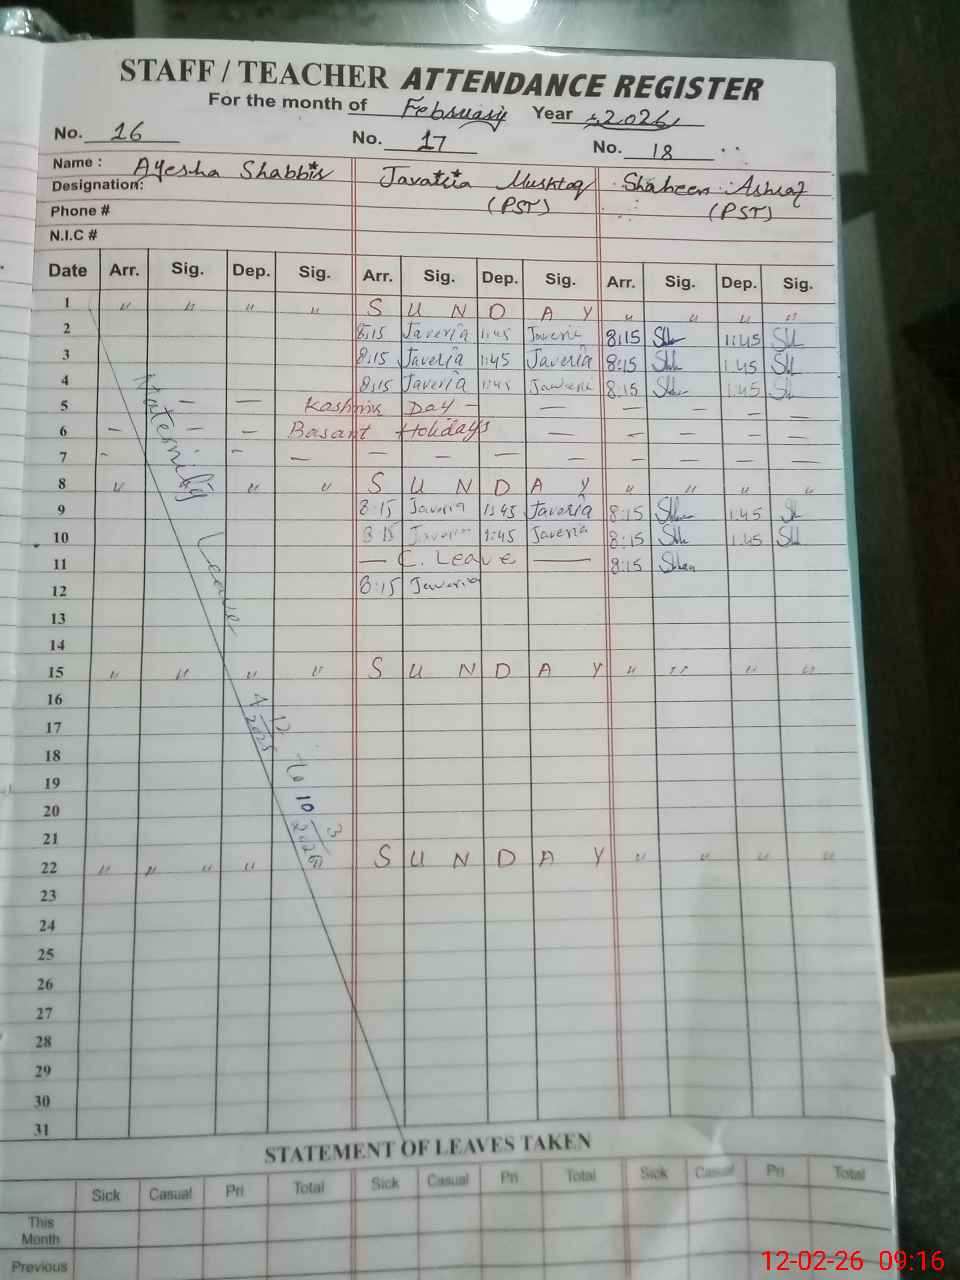 STAFF / TEACHER ATTENDANCE REGISTER
For the month of February Year 2026
No. 16 No. 17 No. 18
Name : Ayesha Shabbir Javairia Mushtaq Shaheen Ashraf
Designation: (PST) (PST)
Phone #
N.I.C #
Date Arr. Sig. Dep. Sig. Arr. Sig. Dep. Sig. Arr. Sig. Dep. Sig.
1 " " " " S U N D A Y " " " "
2 8:15 Javeria 1:45 Javeria 8:15 1:45
3 8:15 Javeria 1:45 Javeria 8:15 1:45
4 8:15 Javeria 1:45 Javeria 8:15 1:45
5 — — Kashmir Day — — — — — —
6 — — — Basant Holidays — — — — —
7 - - — — — — — — — — —
8 " " " S U N D A Y " " " "
9 8:15 Javeria 1:45 Javeria 8:15 1:45
10 8:15 Javeria 1:45 Javeria 8:15 1:45
11 — C. Leave — 8:15
12 8:15 Javeria
13
14
15 " " " " S U N D A Y " " " "
16
17
18
19
20
21
22 " " " " S U N D A Y " " " "
23
24
25
26
27
28
29
30
31
Maternity Leave
4/12/2025 to 10/3
STATEMENT OF LEAVES TAKEN
Sick Casual Pri Total Sick Casual Pri Total Sick Casual Pri Total
This Month
Previous
12-02-26 09:16